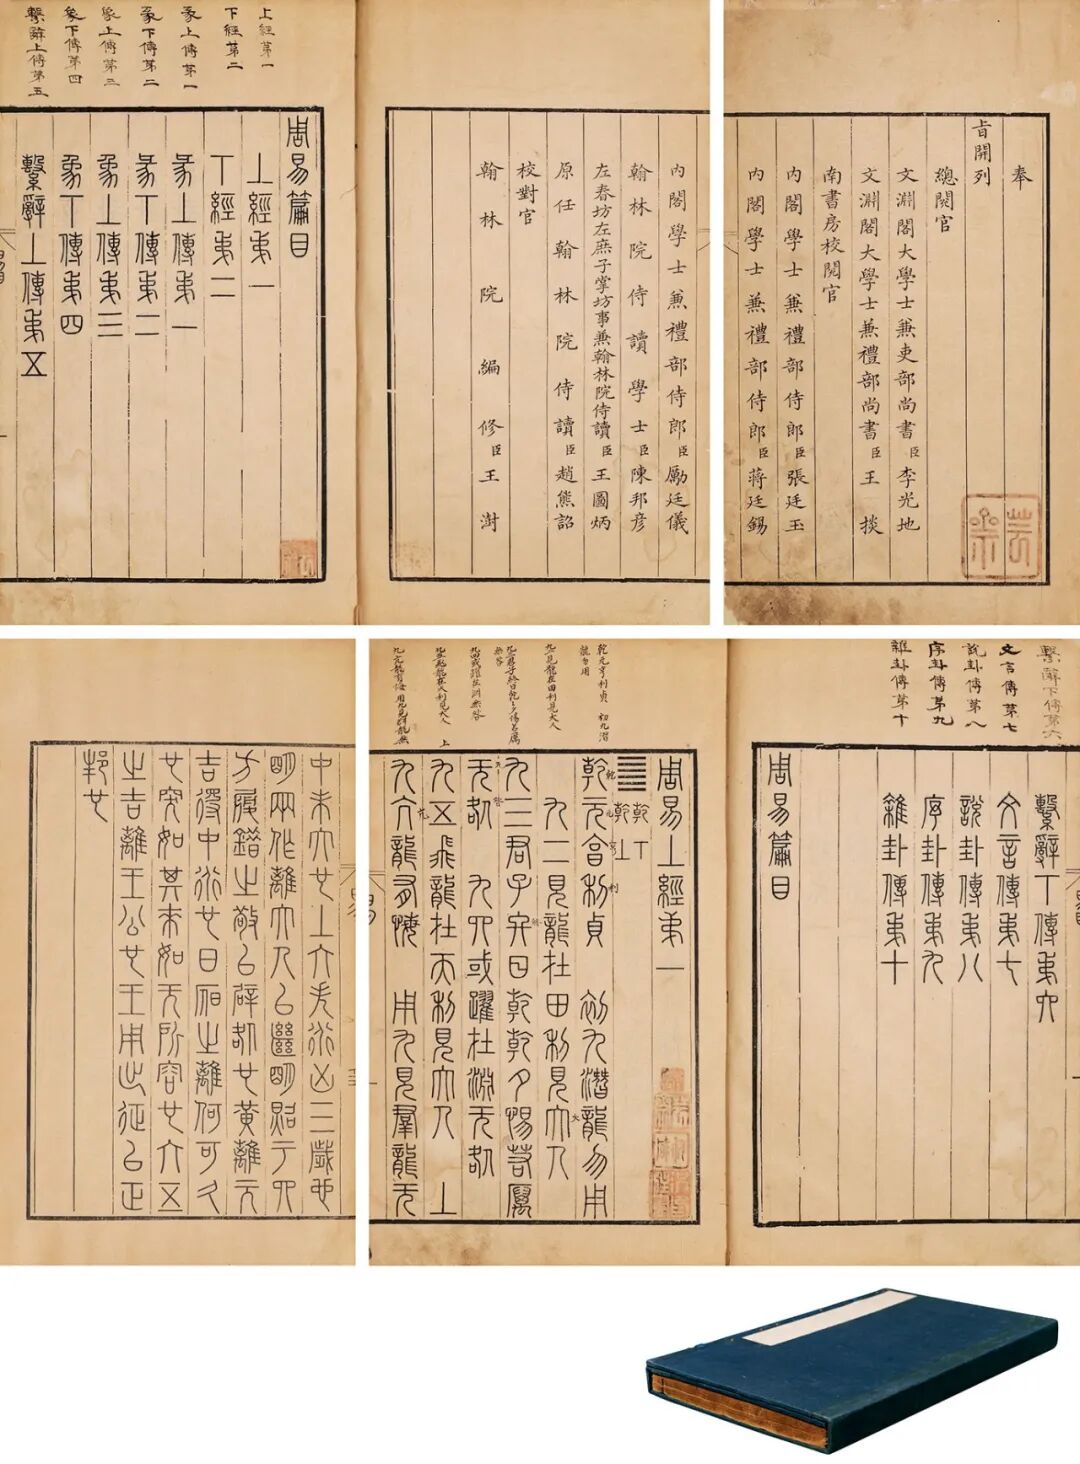 奉
旨開列
總閱官
文淵閣大學士兼吏部尚書臣李光地
文淵閣大學士兼禮部尚書臣王掞
南書房校閱官
內閣學士兼禮部侍郎臣張廷玉
內閣學士兼禮部侍郎臣蔣廷錫
內閣學士兼禮部侍郎臣勵廷儀
翰林院侍讀學士臣陳邦彥
左春坊左庶子掌坊事兼翰林院侍讀臣王圖炳
原任翰林院侍讀臣趙熊詔
校對官
翰林院編修臣王澍
上經第一
下經第二
彖上傳第一
彖下傳第二
象上傳第三
象下傳第四
繫辭上傳第五
周易篇目
上經弟一
下經弟二
彖上傳弟一
彖下傳弟二
象上傳弟三
象下傳弟四
繫辭上傳弟五
繫辭下傳第六
文言傳第七
說卦傳第八
序卦傳第九
雜卦傳第十
繫辭下傳弟六
文言傳弟七
說卦傳弟八
序卦傳弟九
雜卦傳弟十
周易篇目
乾元亨利貞 初九潛
龍勿用
九二見龍在田利見大人
九三君子終日乾乾夕惕若厲
無咎
九四或躍在淵無咎
九五飛龍在天利見大人 上
九亢龍有悔 用九見群龍無
周易上經弟一
乾下
乾上
乾元亨利貞 初九潛龍勿用
九二見龍在田利見大人
九三君子終日乾乾夕惕若厲
无咎 九四或躍在淵无咎
九五飛龍在天利見大人 上
九亢龍有悔 用九見羣龍无
中未大也上六失道凶三歲也
明兩作離大人以繼明照于四
方履錯之敬以辟咎也黃離元
吉得中道也日昃之離何可久
也突如其來如无所容也六五
之吉離王公也王用出征以正
邦也